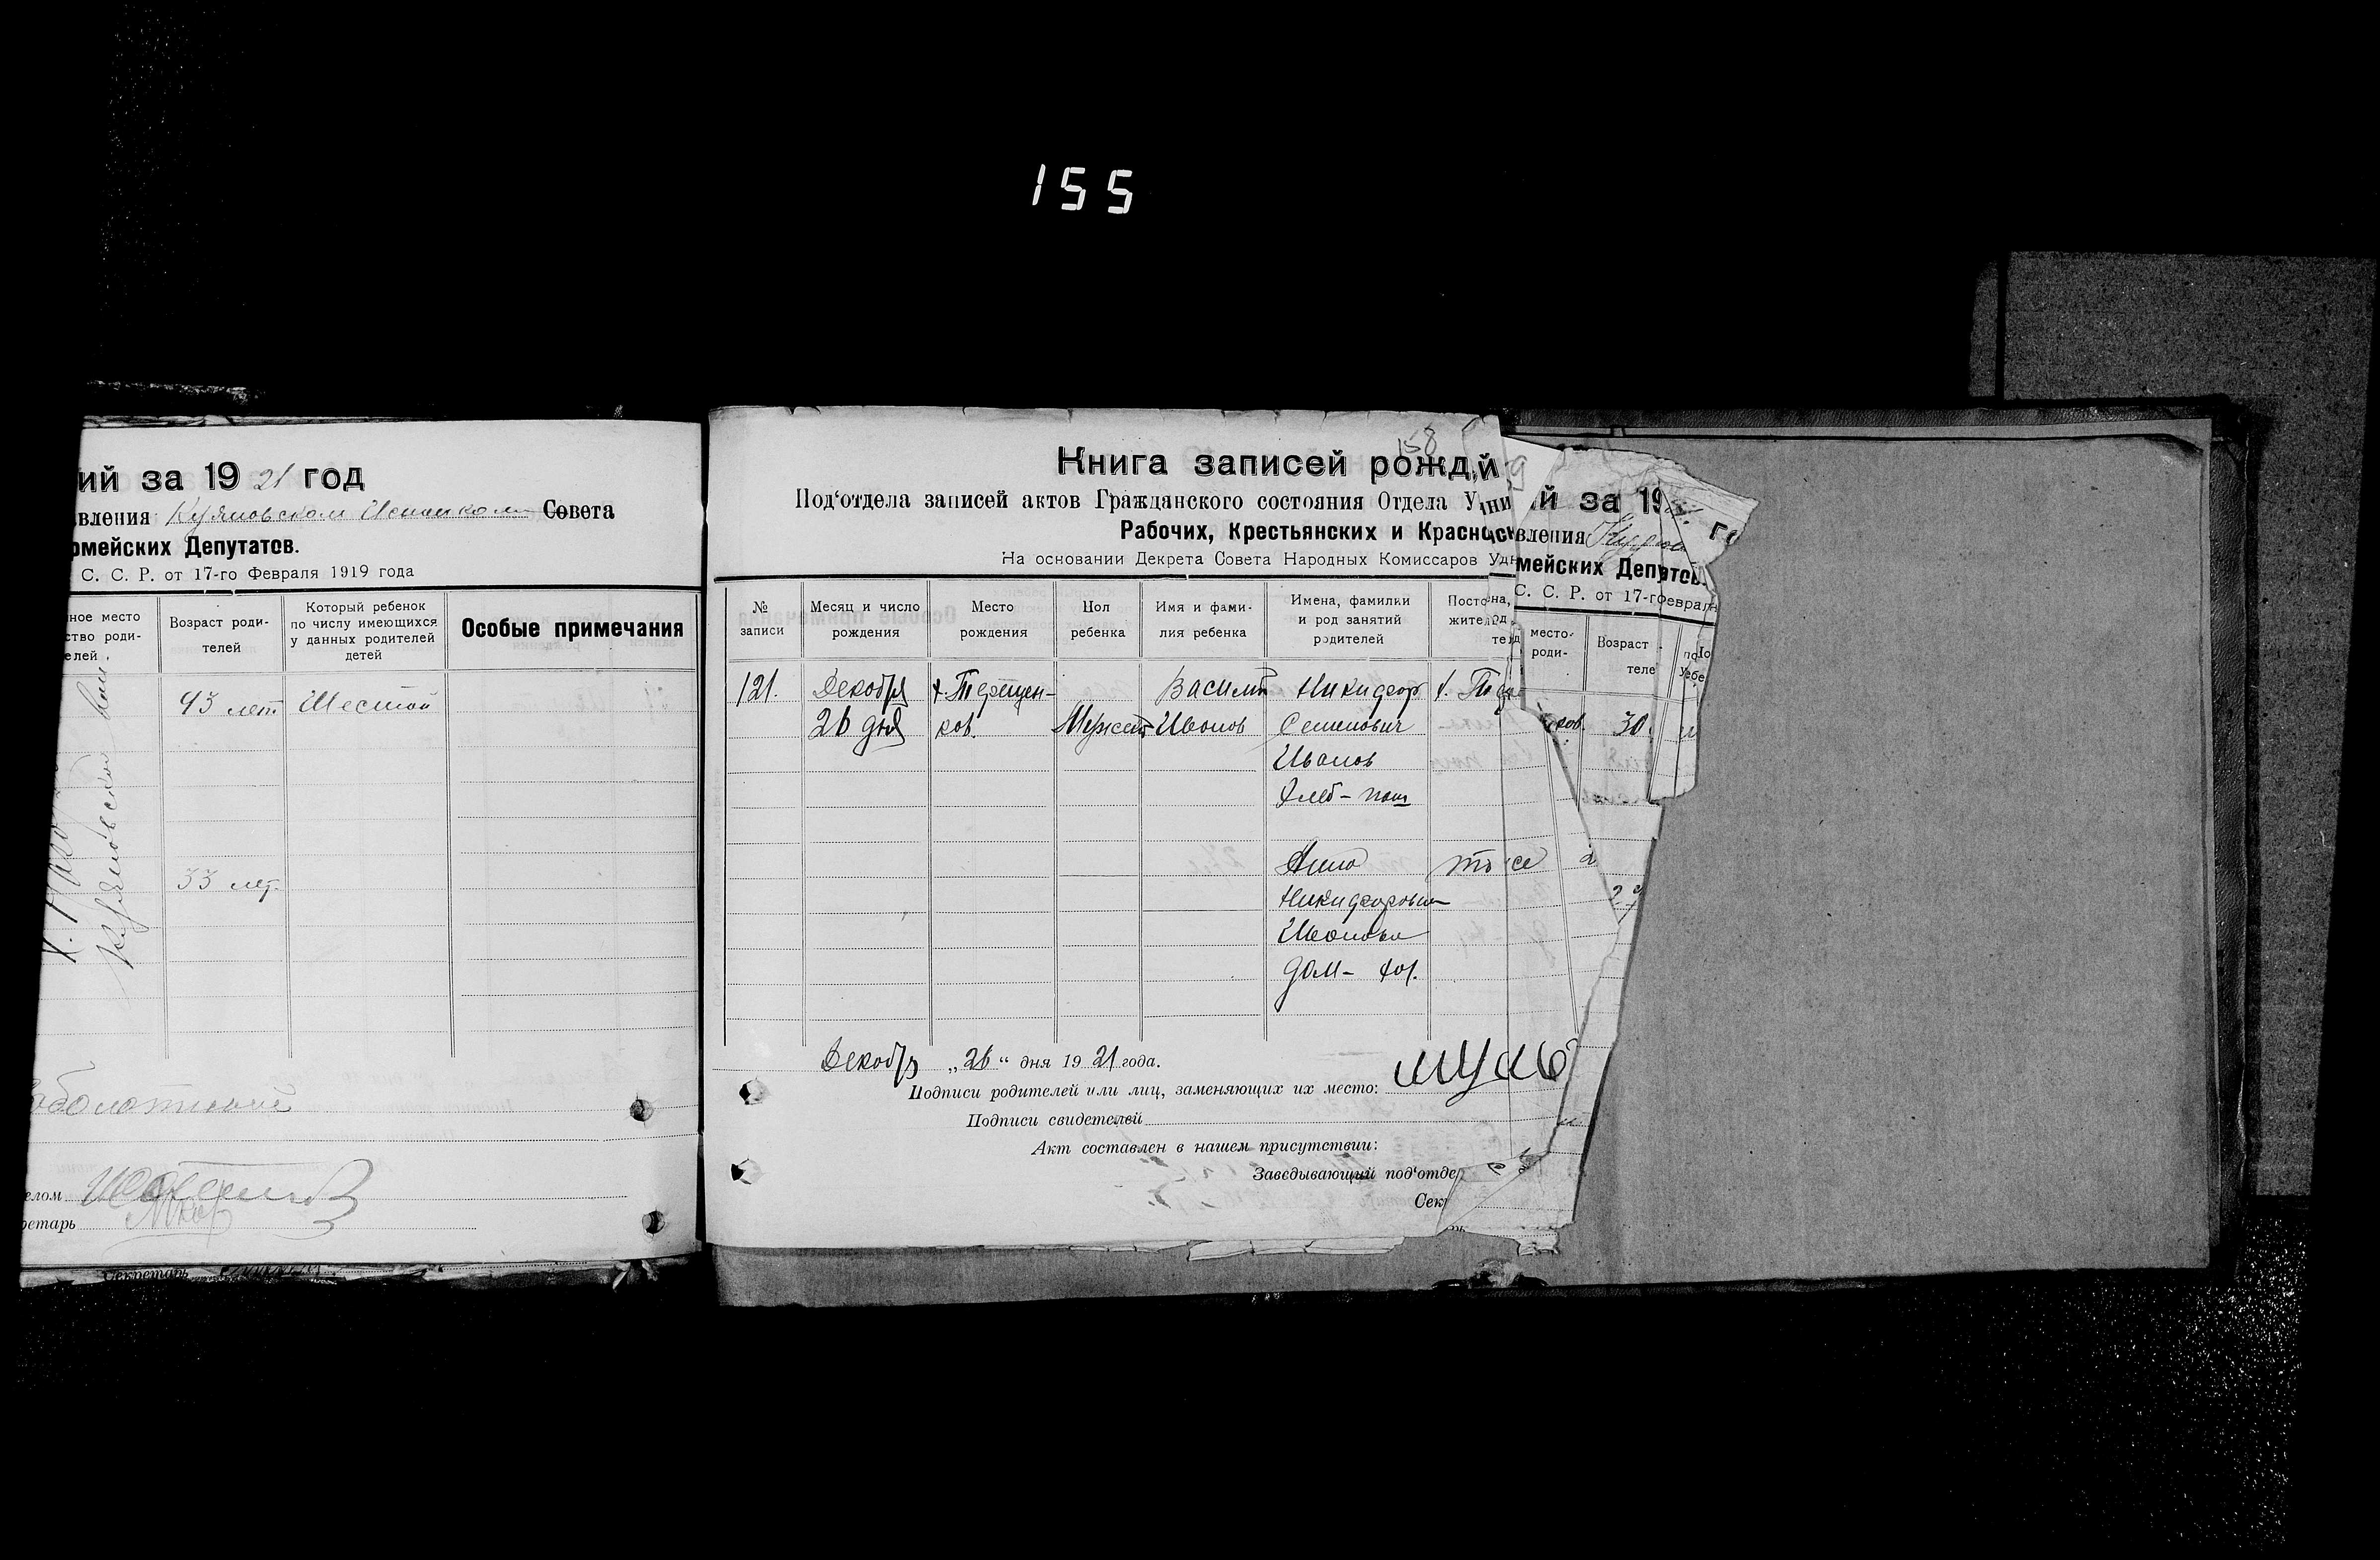 155
ий за 19 21 год
авления Кузяновском Исполком Совета
рмейских Депутатов.
С. С. Р. от 17-го Февраля 1919 года
ное место
ство роди-
елей
Возраст роди-
телей
Который ребенок
по числу имеющихся
у данных родителей
детей
Особые примечания
43 лет Шестой
33 лет
елом
ретарь
Секретарь
158
Книга записей рожд
Под‘отдела записей актов Гражданского состояния Отдела У
Рабочих, Крестьянских и Красно
На основании Декрета Совета Народных Комиссаров У
№
записи
Месяц и число
рождения
Место
рождения
Пол
ребенка
Имя и фами-
лия ребенка
Имена, фамилки
и род занятий
родителей
Посто
жител
121. Декабря х. Терещен- Василий Никифор х.
26 дня ков. Мужск Иванов Семенович
Иванов
Хлеб-паш
Анна то же
Никифоровна
Иванова
дом- хоз.
Декабр „26“ дня 19 21 года.
Подписи родителей или лиц, заменяющих их место:
Подписи свидетелей
Акт составлен в нашем присутствии:
Заведывающий под‘отде
Сек
й за 19
вления
мейских Депутатов.
С. С. Р. от 17-г Февраля
место-
роди-
Возраст
теле
ков. 30